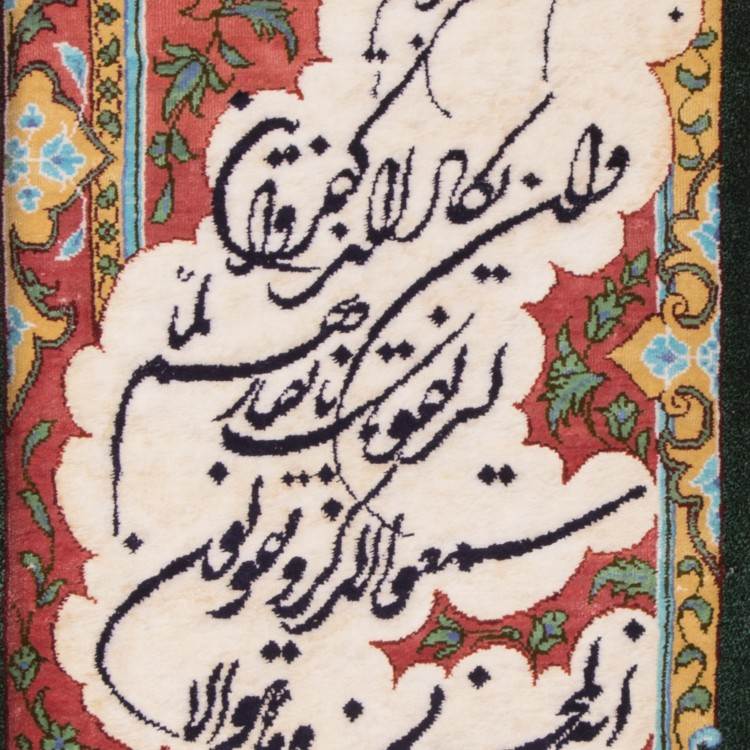 وان یکاد الذین کفروا
لیزلقونک بابصارهم لما
سمعوا الذکر و یقولون
انه لمجنون و ما هو الا